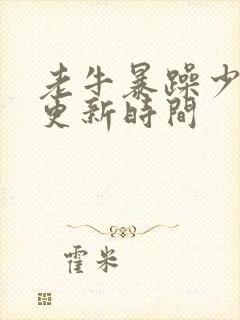 老牛暴躁少
更新時間
霍米